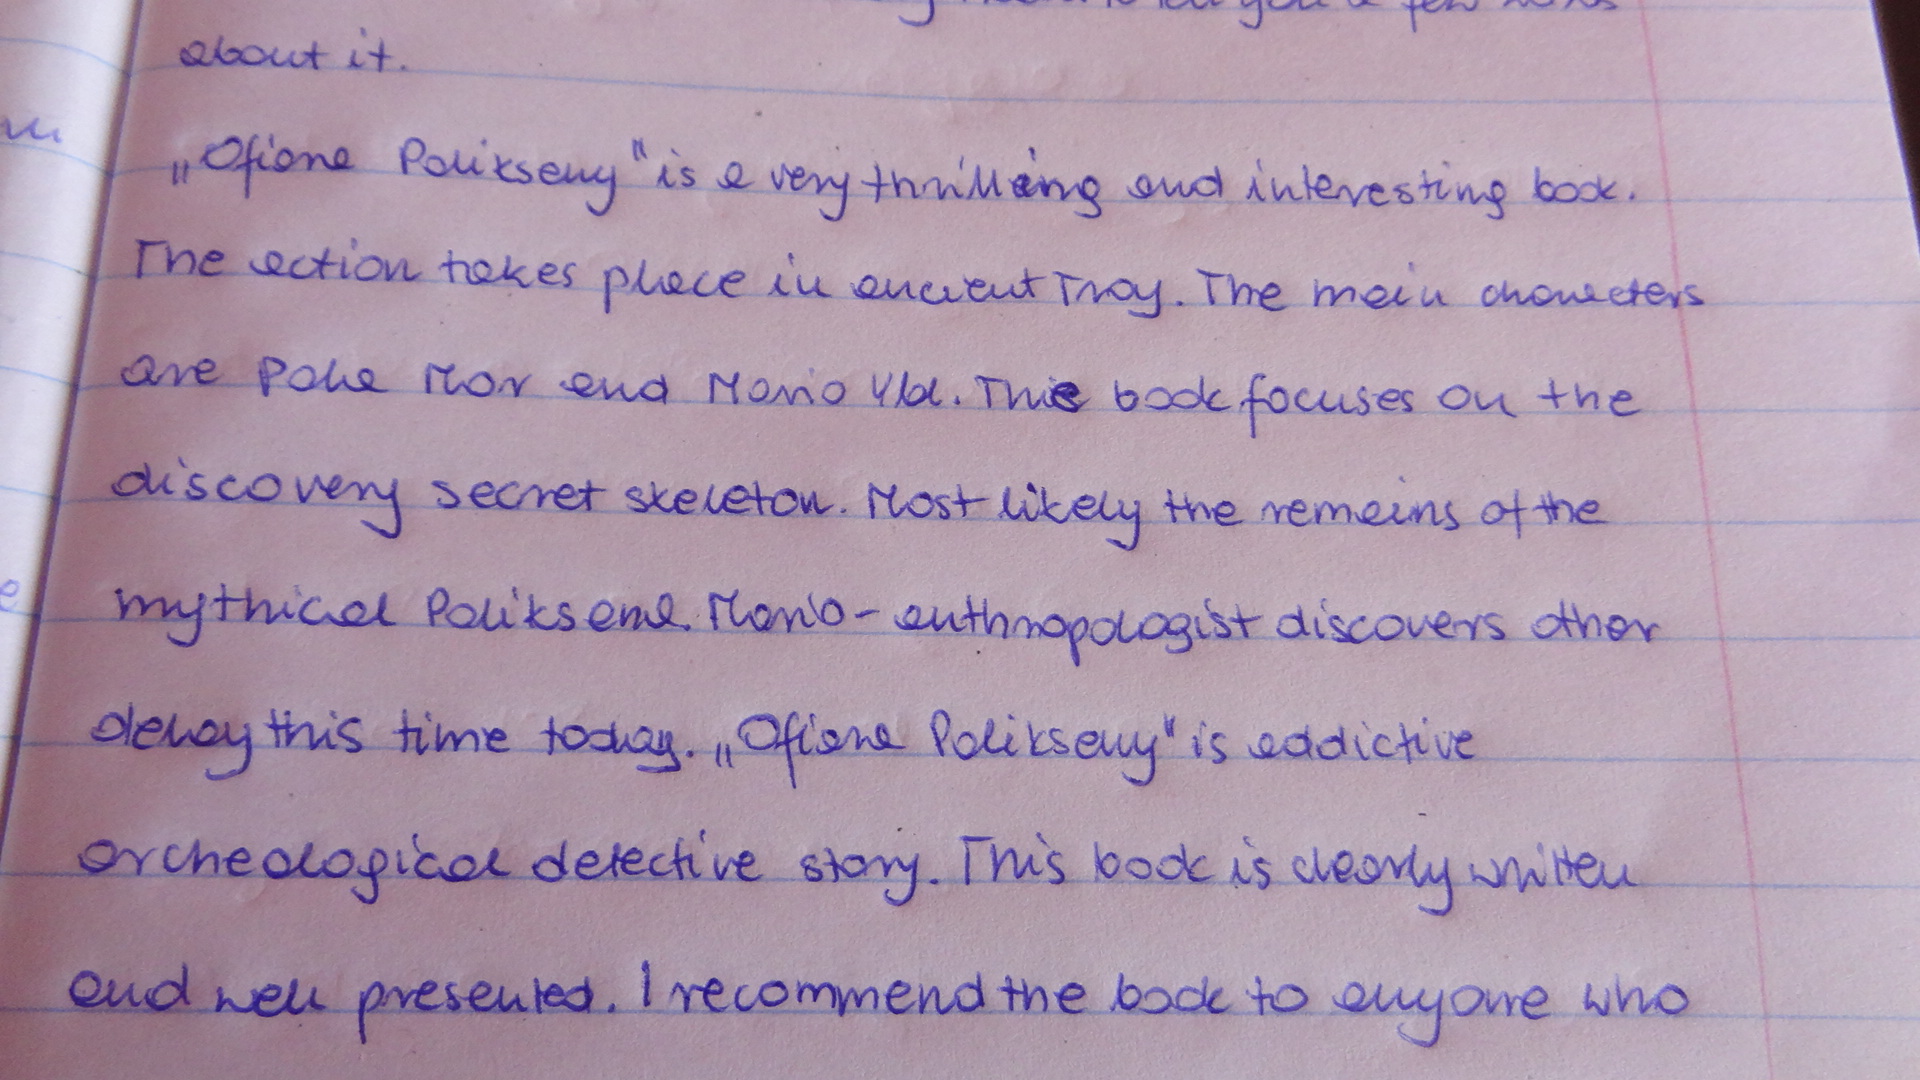 you a few words
about it.
„Ofiara Polikseny" is a very thrilling and interesting book.
The action takes place in ancient Troy. The main characters
are Pola Mor and Mario Ybl. This book focuses on the
discovery secret skeleton. Most likely the remains of the
mythical Poliksena. Mario - anthropologist discovers other
delay this time today. „Ofiara Polikseny" is addictive
archeological detective story. This book is clearly written
and well presented. I recommend the book to anyone who